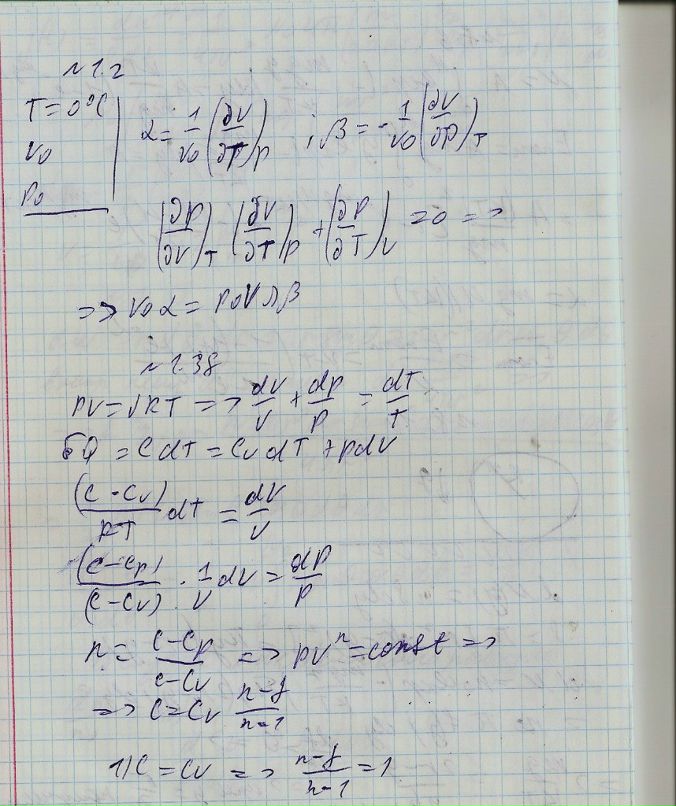 № 1.2
T=0°C
V₀
P₀
α = 1/V₀ (∂V/∂T)ₚ ; β = - 1/V₀ (∂V/∂p)_T
(∂p/∂V)_T (∂V/∂T)ₚ + (∂P/∂T)_V = 0 =>
=> V₀α = P₀V₀λβ
№ 1.38
PV = νRT => dV/V + dp/p = dT/T
δQ = CdT = CvdT + pdV
(C - Cv)/RT dT = dV/V
(C-Cp)/(C-Cv) · 1/V dV = dP/P
n = C-Cp/C-Cv => pVⁿ = const =>
=> C = Cv n-γ/n-1
1) C = Cv => n-γ/n-1 = 1